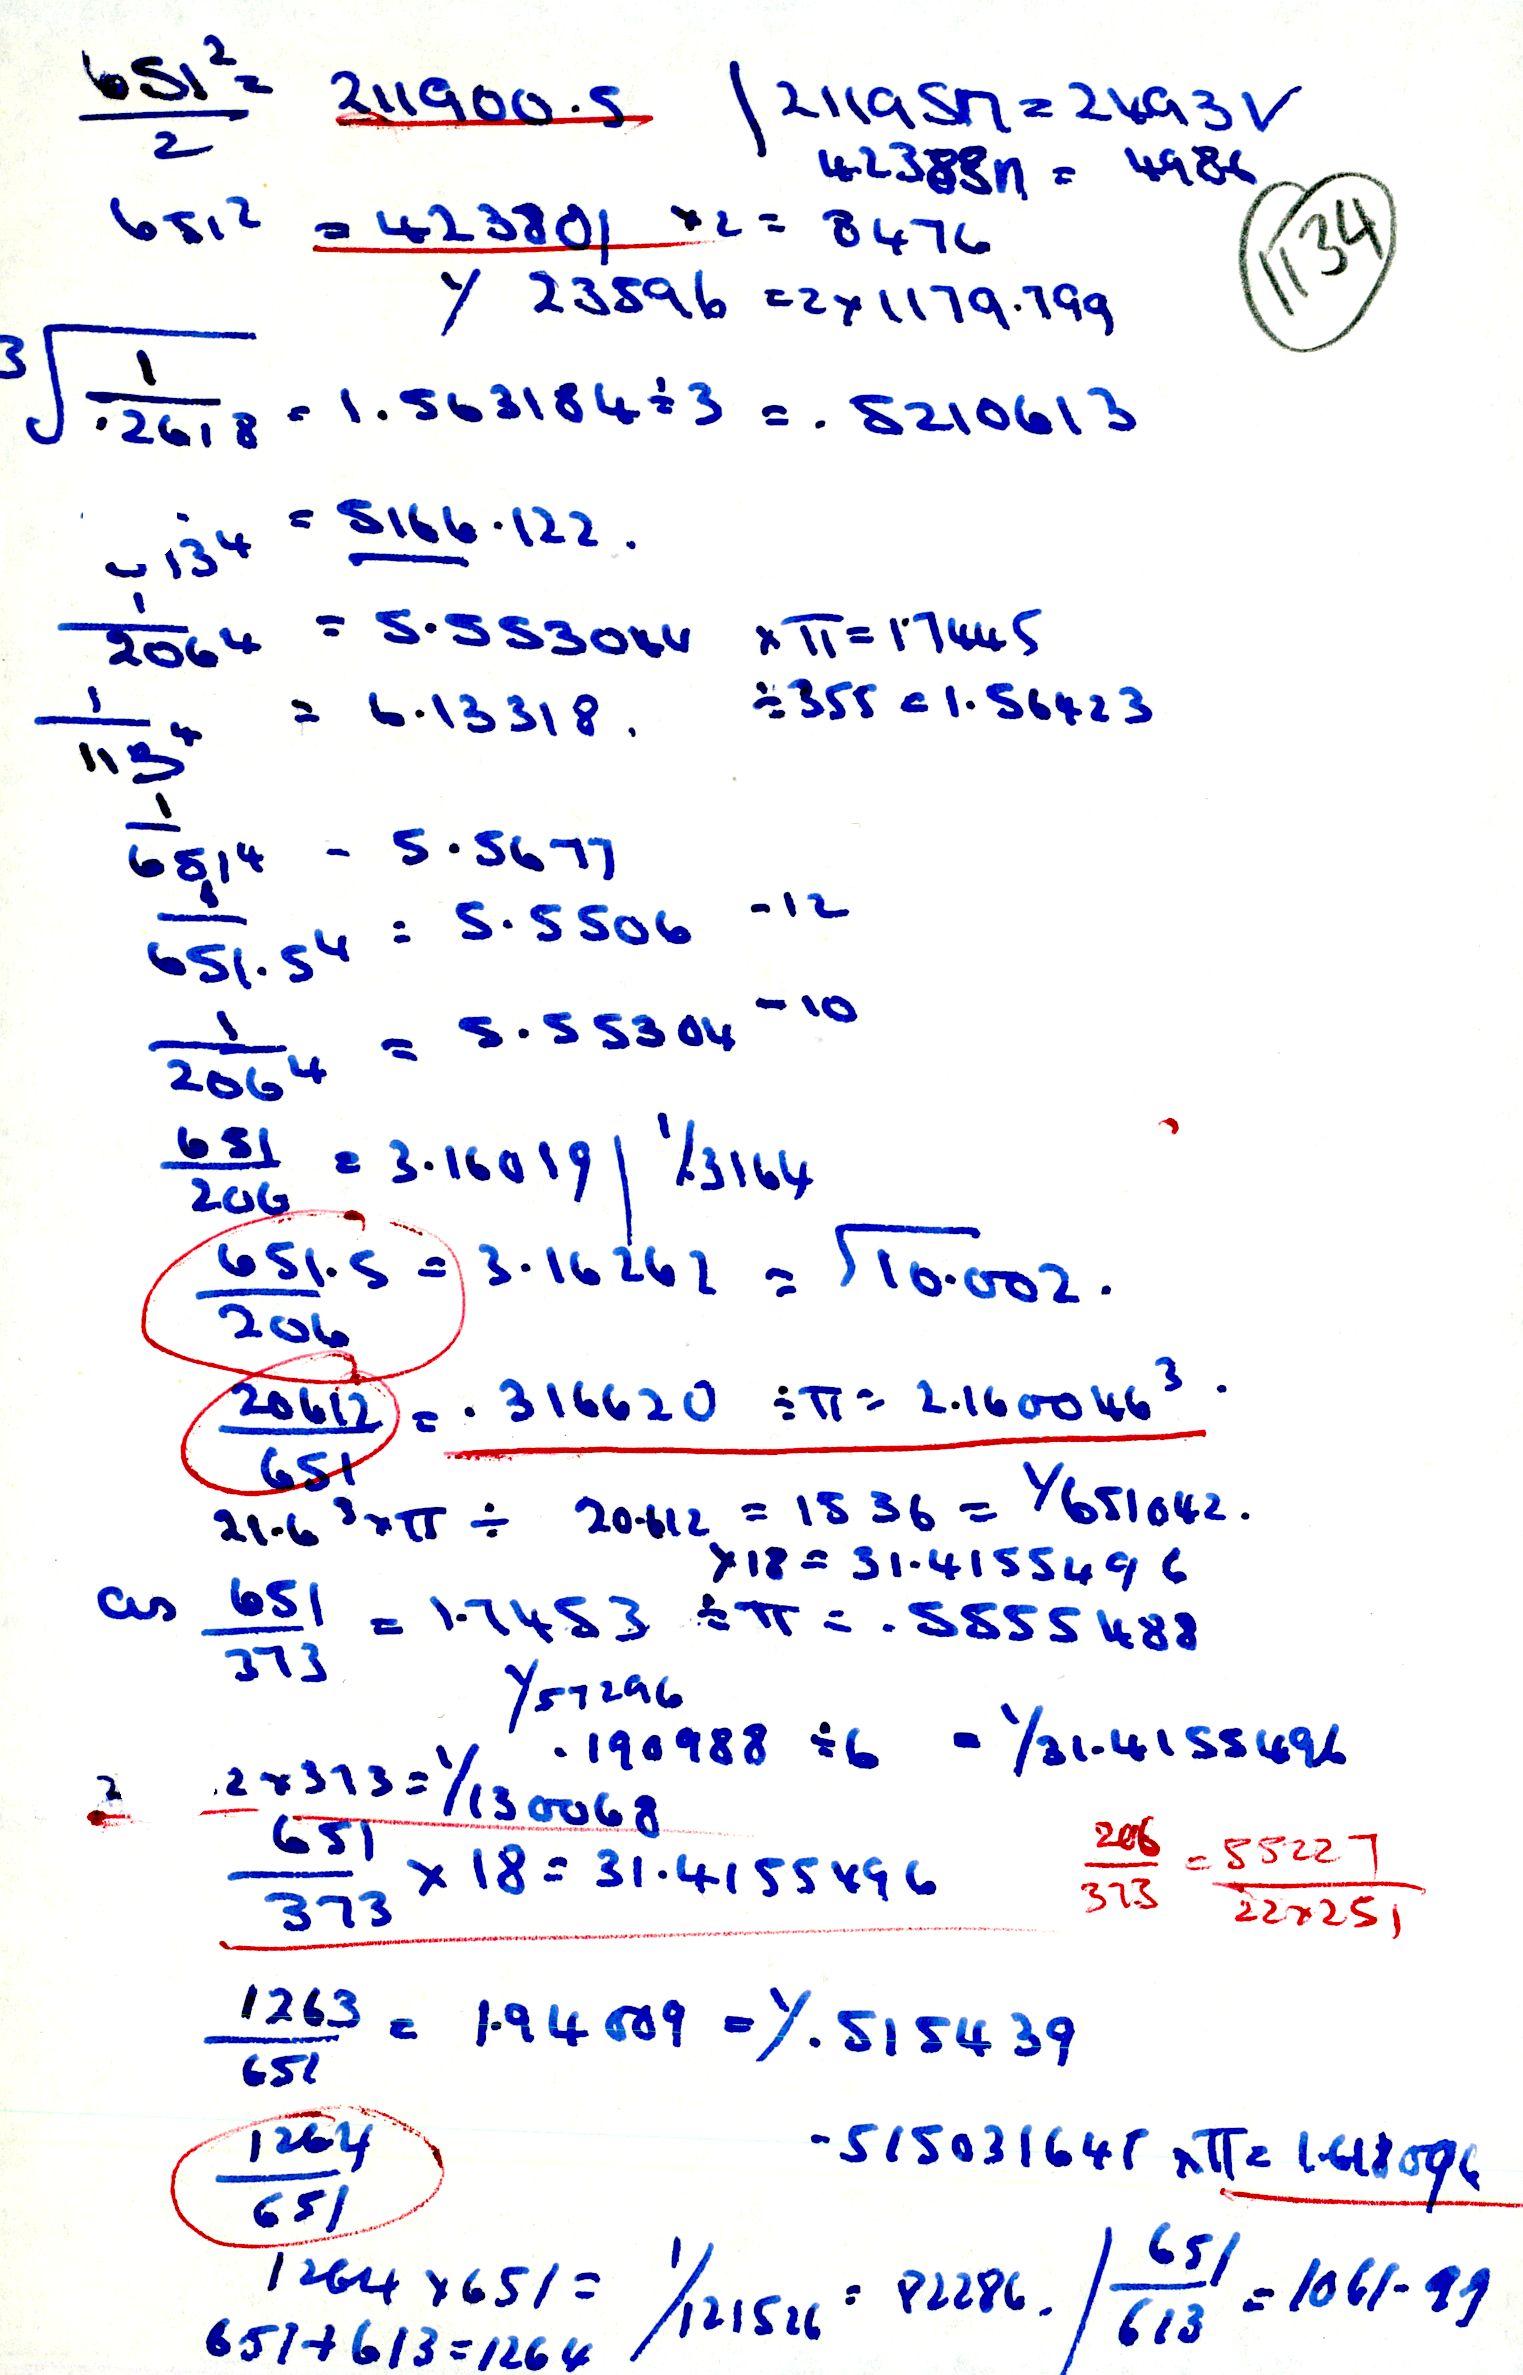 651²/2 = 211900.5 | 21195π = 2493√
42388π = 4986
1134
651² = 423801 × 2 = 8476
1/ 23596 = 2 × 1179.799
³√1/.2618 = 1.563184 ÷ 3 = .5210613
134 = 5166.122.
1/206⁴ = 5.553044 × π = 17445
1/113⁴ = 6.13318. ÷ 355 = 1.56423
1/651⁴ - 5.5677
1/651.5⁴ = 5.5506 -12
1/206⁴ = 5.55304 -10
651/206 = 3.16019 | 1/3164
651.5/206 = 3.16262 = √10.002.
20612/651 = .316620 ÷ π = 2.160046³.
21.6³ × π ÷ 20.612 = 1536 = 1/651042.
× 18 = 31.4155496
651/373 = 1.7453 ÷ π = .5555488
1/57296
.190988 ÷ 6 = 1/31.4155496
2 .2 × 373 = 1/130068
651/373 × 18 = 31.4155496
206/373 = 55227/22×251
1263/651 = 1.94009 = 1/.515439
1264/651 -515031645 × π = 1.618096
1264 × 651 = 1/121526 = 82286. | 651/613 = 1061-99
651 + 613 = 1264